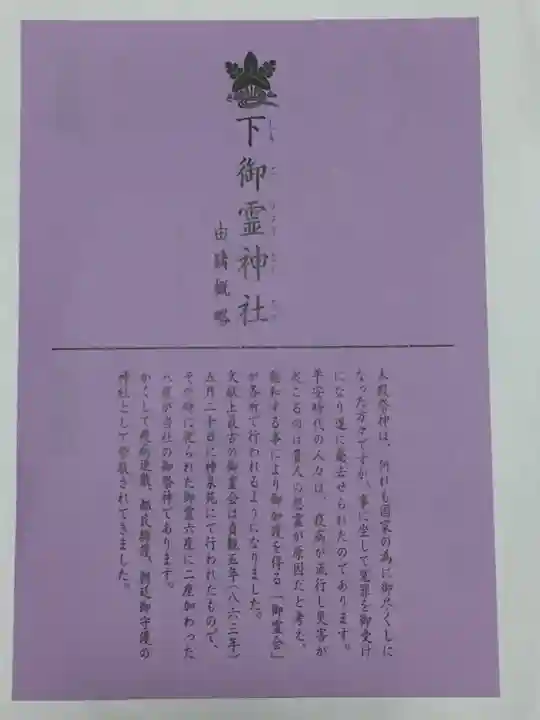 下御霊神社
しも ご りょう じん じゃ
由緒概略
本殿祭神は、何れも国家の為に御尽くしに
なった方々ですが、事に坐して冤罪を御受け
になり遂に薨去せられたのであります。
平安時代の人々は、疫病が流行し災害が
起こるのは貴人の怨霊が原因だと考え、
転ずる事により御加護を得る「御霊会」
が各所で行われるようになりました。
文献上最古の御霊会は貞観五年(八六三年)
五月二十日に神泉苑にて行われたもので、
その時に祀られた御霊六座に二座加わった
八座が当社の御祭神であります。
かくして疫病退散、朝廷御守護の
神社として崇敬されてきました。